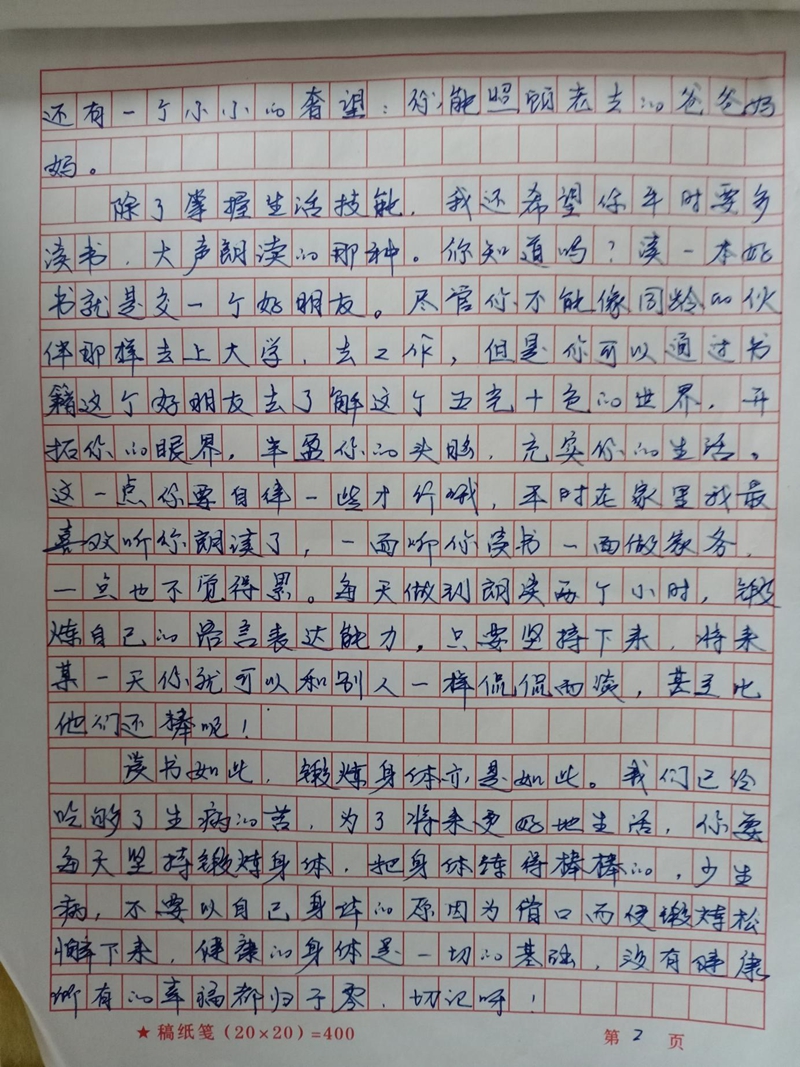 还有一个小小的奢望：你能照顾老去的爸爸妈
妈。
除了掌握生活技能，我还希望你平时要多
读书，大声朗读的那种。你知道吗？读一本好
书就是交一个好朋友。尽管你不能像同龄的伙
伴那样去上大学，去工作，但是你可以通过书
籍这个好朋友去了解这个五光十色的世界，开
拓你的眼界，丰盈你的头脑，充实你的生活。
这一点你要自律一些才行哦，平时在家里我最
喜欢听你朗读了，一面听你读书一面做家务，
一点也不觉得累。每天做到朗读两个小时，锻
炼自己的语言表达能力，只要坚持下来，将来
某一天你就可以和别人一样侃侃而谈，甚至比
他们还棒呢！
读书如此，锻炼身体亦是如此。我们已经
吃够了生病的苦，为了将来更好地生活，你要
每天坚持锻炼身体，把身体练得棒棒的，少生
病，不要以自己身体的原因为借口而使锻炼松
懈下来，健康的身体是一切的基础，没有健康
所有的幸福都归于零，切记呀！
★稿纸笺（20×20）=400 第 2 页